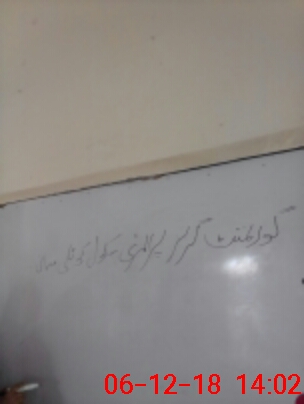 گورنمنٹ گرلز پرائمری سکول کوٹلی
06-12-18 14:02